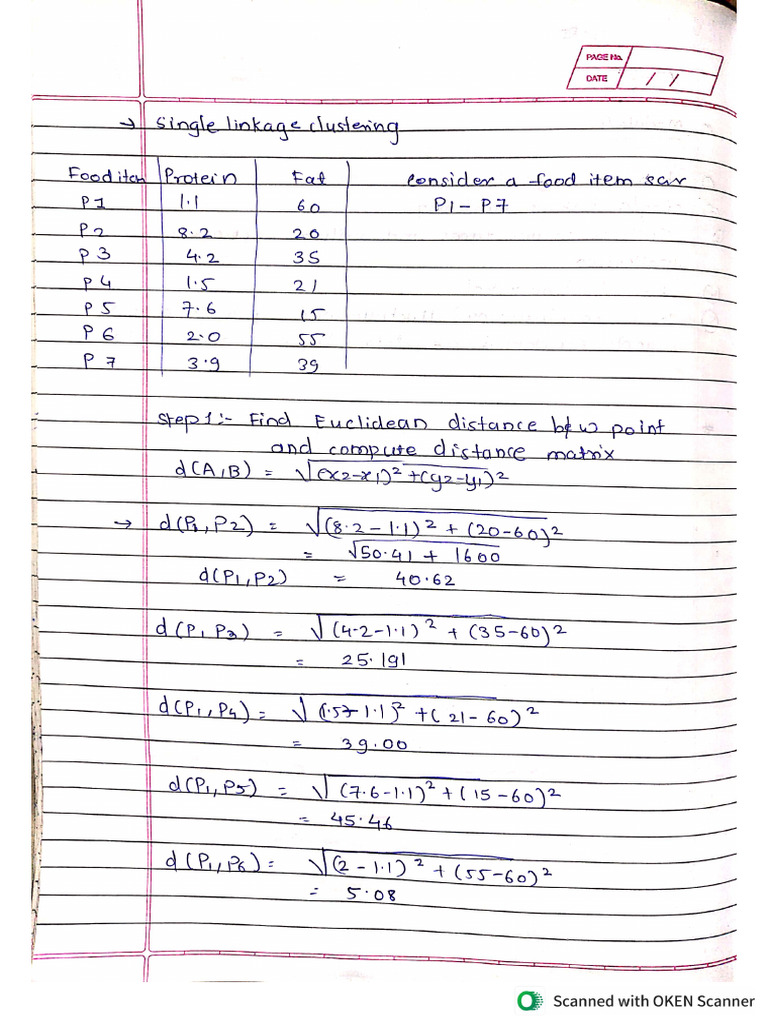 PAGE No.
DATE / /
→ single linkage clustering
Food item Protein Fat consider a food item say
P1 1.1 60 P1 - P7
P2 8.2 20
P3 4.2 35
P4 1.5 21
P5 7.6 15
P6 2.0 55
P7 3.9 39
Step 1:- Find Euclidean distance b/w point
and compute distance matrix
d(A,B) = √(x2-x1)² + (y2-y1)²
→ d(P1,P2) = √(8.2-1.1)² + (20-60)²
= √50.41 + 1600
d(P1,P2) = 40.62
d(P1 P3) = √(4.2-1.1)² + (35-60)²
= 25.191
d(P1,P4) = √(1.5-1.1)² + (21-60)²
= 39.00
d(P1,P5) = √(7.6-1.1)² + (15-60)²
= 45.46
d(P1,P6) = √(2-1.1)² + (55-60)²
= 5.08
Scanned with OKEN Scanner